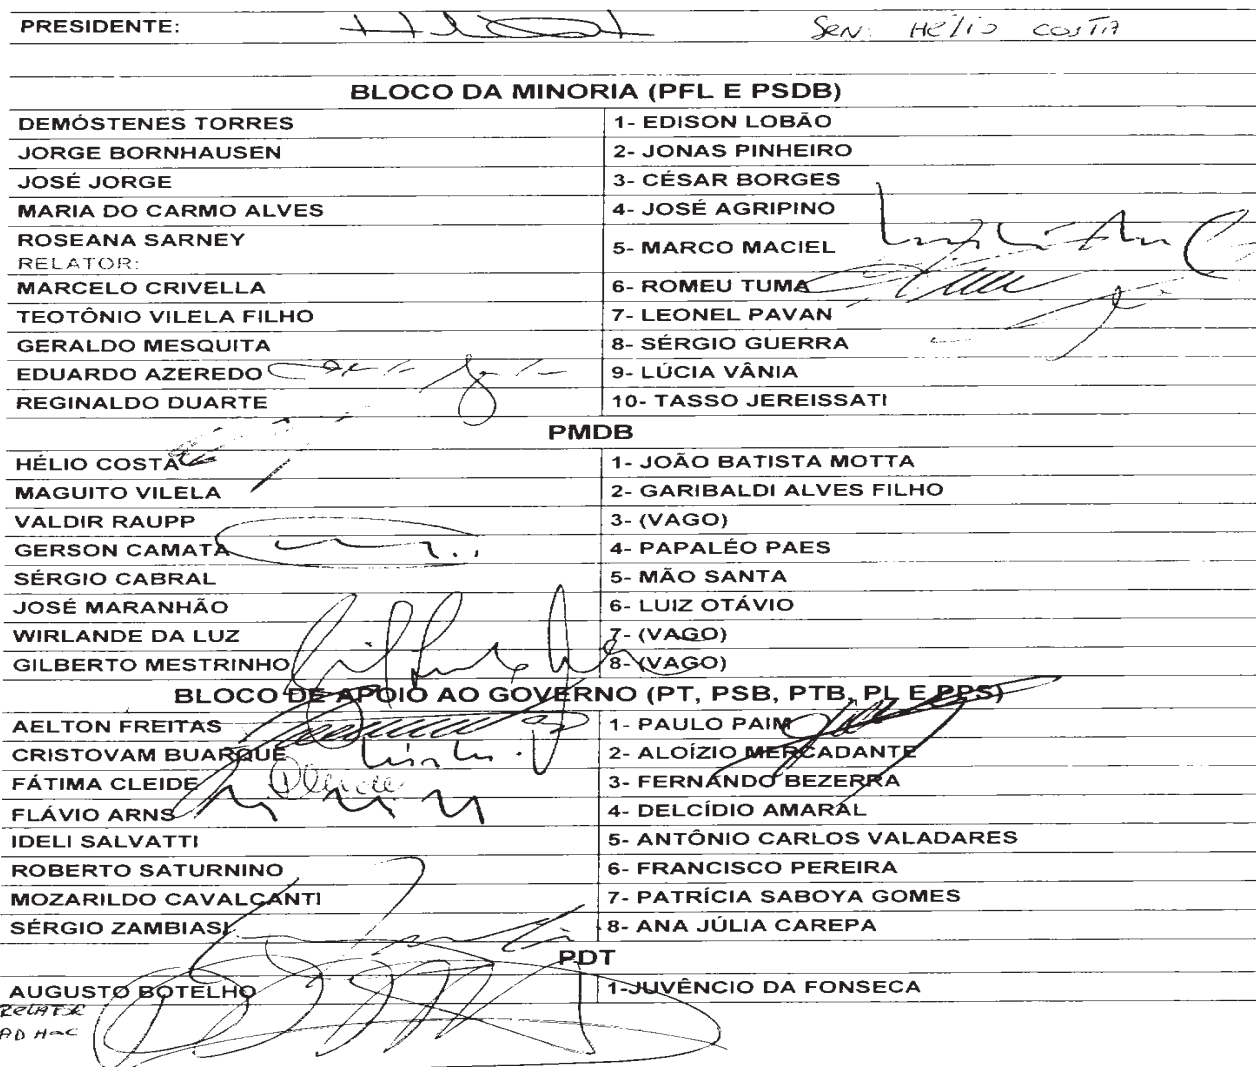 PRESIDENTE: SEN: HéliO COSTA
BLOCO DA MINORIA (PFL E PSDB)
DEMÓSTENES TORRES 1- EDISON LOBÃO
JORGE BORNHAUSEN 2- JONAS PINHEIRO
JOSÉ JORGE 3- CÉSAR BORGES
MARIA DO CARMO ALVES 4- JOSÉ AGRIPINO
ROSEANA SARNEY 5- MARCO MACIEL
RELATOR:
MARCELO CRIVELLA 6- ROMEU TUMA
TEOTÔNIO VILELA FILHO 7- LEONEL PAVAN
GERALDO MESQUITA 8- SÉRGIO GUERRA
EDUARDO AZEREDO 9- LÚCIA VÂNIA
REGINALDO DUARTE 10- TASSO JEREISSATI
PMDB
HÉLIO COSTA 1- JOÃO BATISTA MOTTA
MAGUITO VILELA 2- GARIBALDI ALVES FILHO
VALDIR RAUPP 3- (VAGO)
GERSON CAMATA 4- PAPALÉO PAES
SÉRGIO CABRAL 5- MÃO SANTA
JOSÉ MARANHÃO 6- LUIZ OTÁVIO
WIRLANDE DA LUZ 7- (VAGO)
GILBERTO MESTRINHO 8- (VAGO)
BLOCO DE APOIO AO GOVERNO (PT, PSB, PTB, PL E PPS)
AELTON FREITAS 1- PAULO PAIM
CRISTOVAM BUARQUE 2- ALOÍZIO MERCADANTE
FÁTIMA CLEIDE 3- FERNANDO BEZERRA
FLÁVIO ARNS 4- DELCÍDIO AMARAL
IDELI SALVATTI 5- ANTÔNIO CARLOS VALADARES
ROBERTO SATURNINO 6- FRANCISCO PEREIRA
MOZARILDO CAVALCANTI 7- PATRÍCIA SABOYA GOMES
SÉRGIO ZAMBIASI 8- ANA JÚLIA CAREPA
PDT
AUGUSTO BOTELHO 1-JUVÊNCIO DA FONSECA
RELATOR
AD HOC